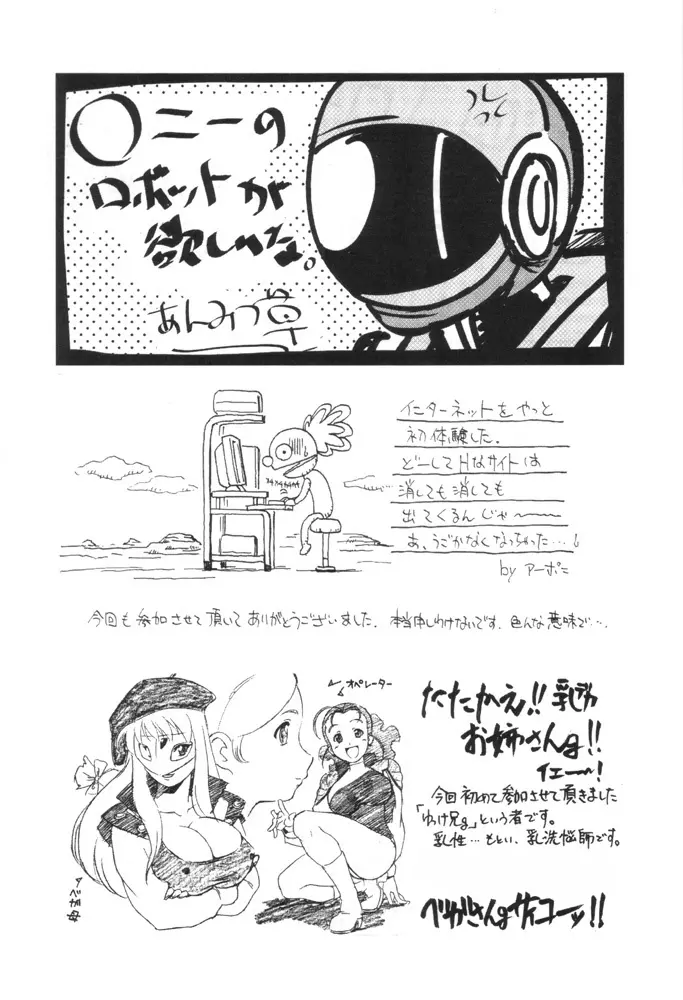 〇ニーの
ロボットが
欲しいな。
あんみつ草
インターネットをやっと
初体験した。
どーしてHなサイトは
消しても消しても
出てくるんじゃ〜〜
あ、うごかなくなっちゃった…!
by アーポニ
今回も参加させて頂いてありがとうございました。本当申しわけないです。色んな意味で…。
オペレーター
たたかえ!!乳力
お姉さん!!
イエー!
今回初めて参加させて頂きました
「ゆけ兄」という者です。
乳性…もとい、乳洗悩師です。
ベガ母
ベガさんサイコーッ!!